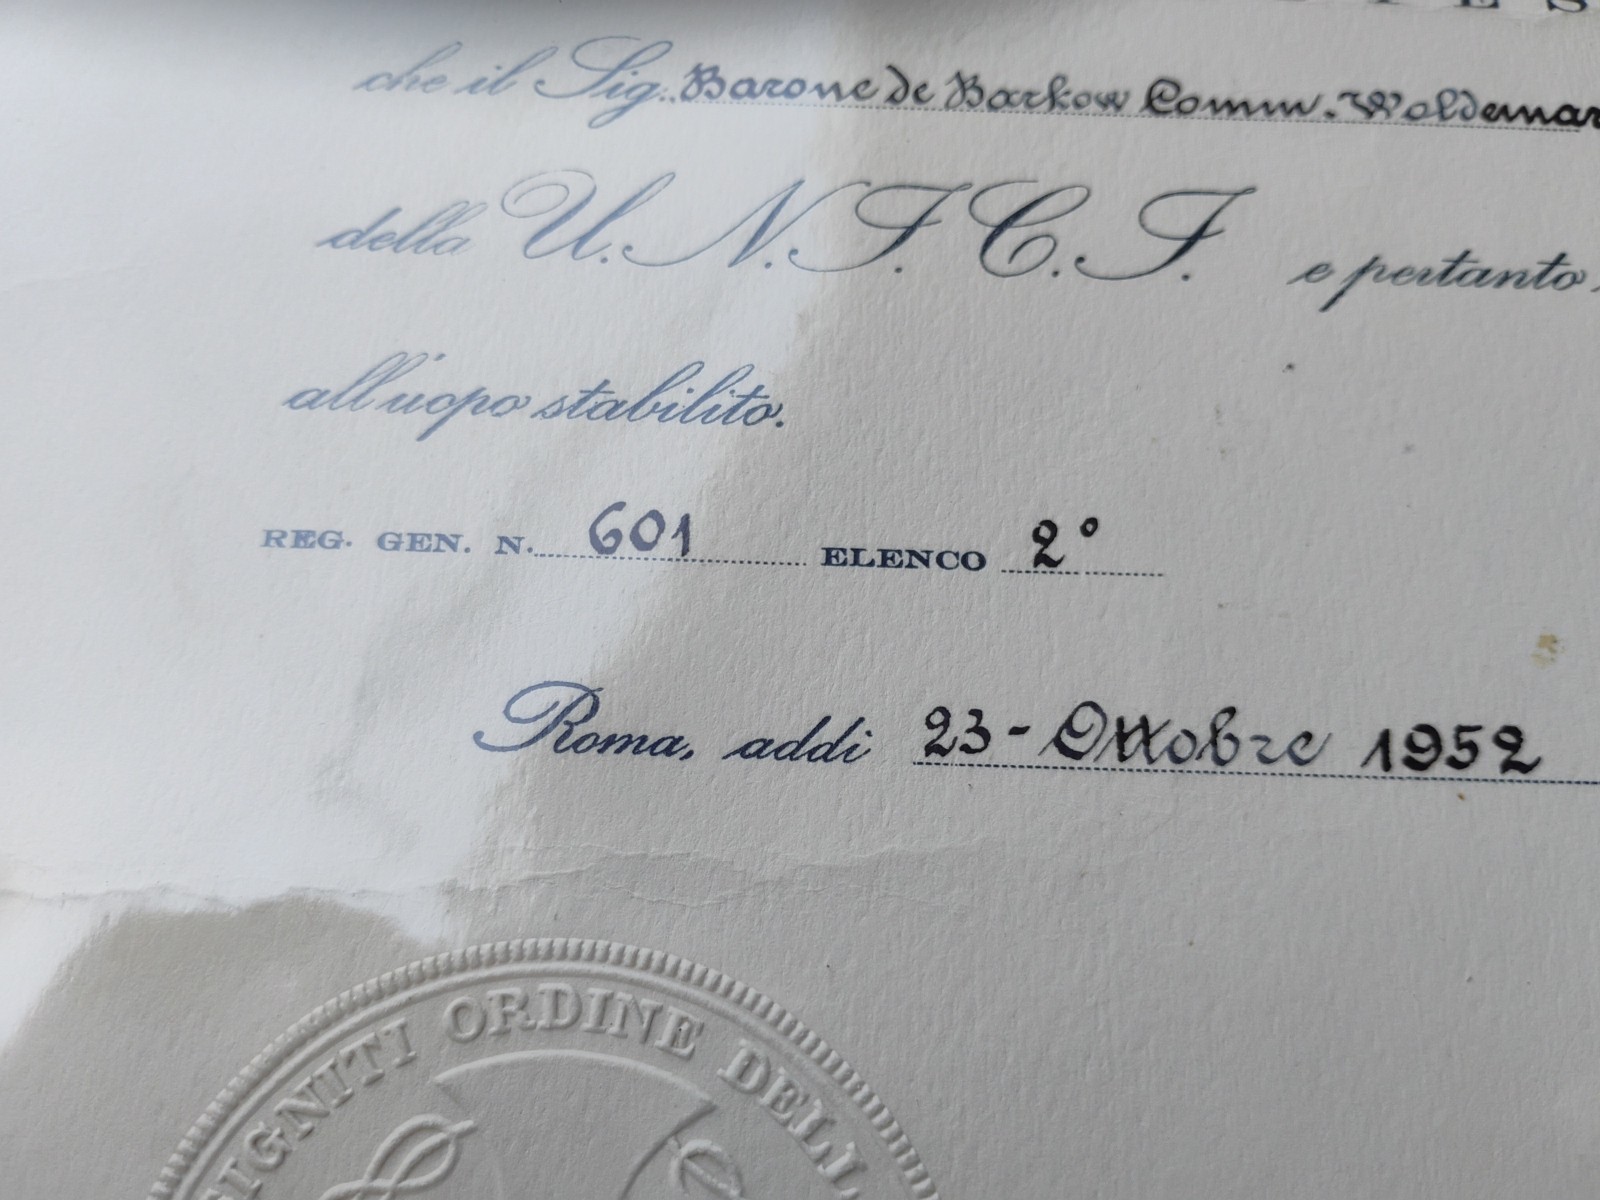 che il Sig. Barone de Barkow Comm. Woldemar
della U. N. I. C. I. e pertanto
all'uopo stabilito.
REG. GEN. N. 601 ELENCO 2°
Roma, addi 23 - Ottobre 1952
SIGNITI ORDINE DELL